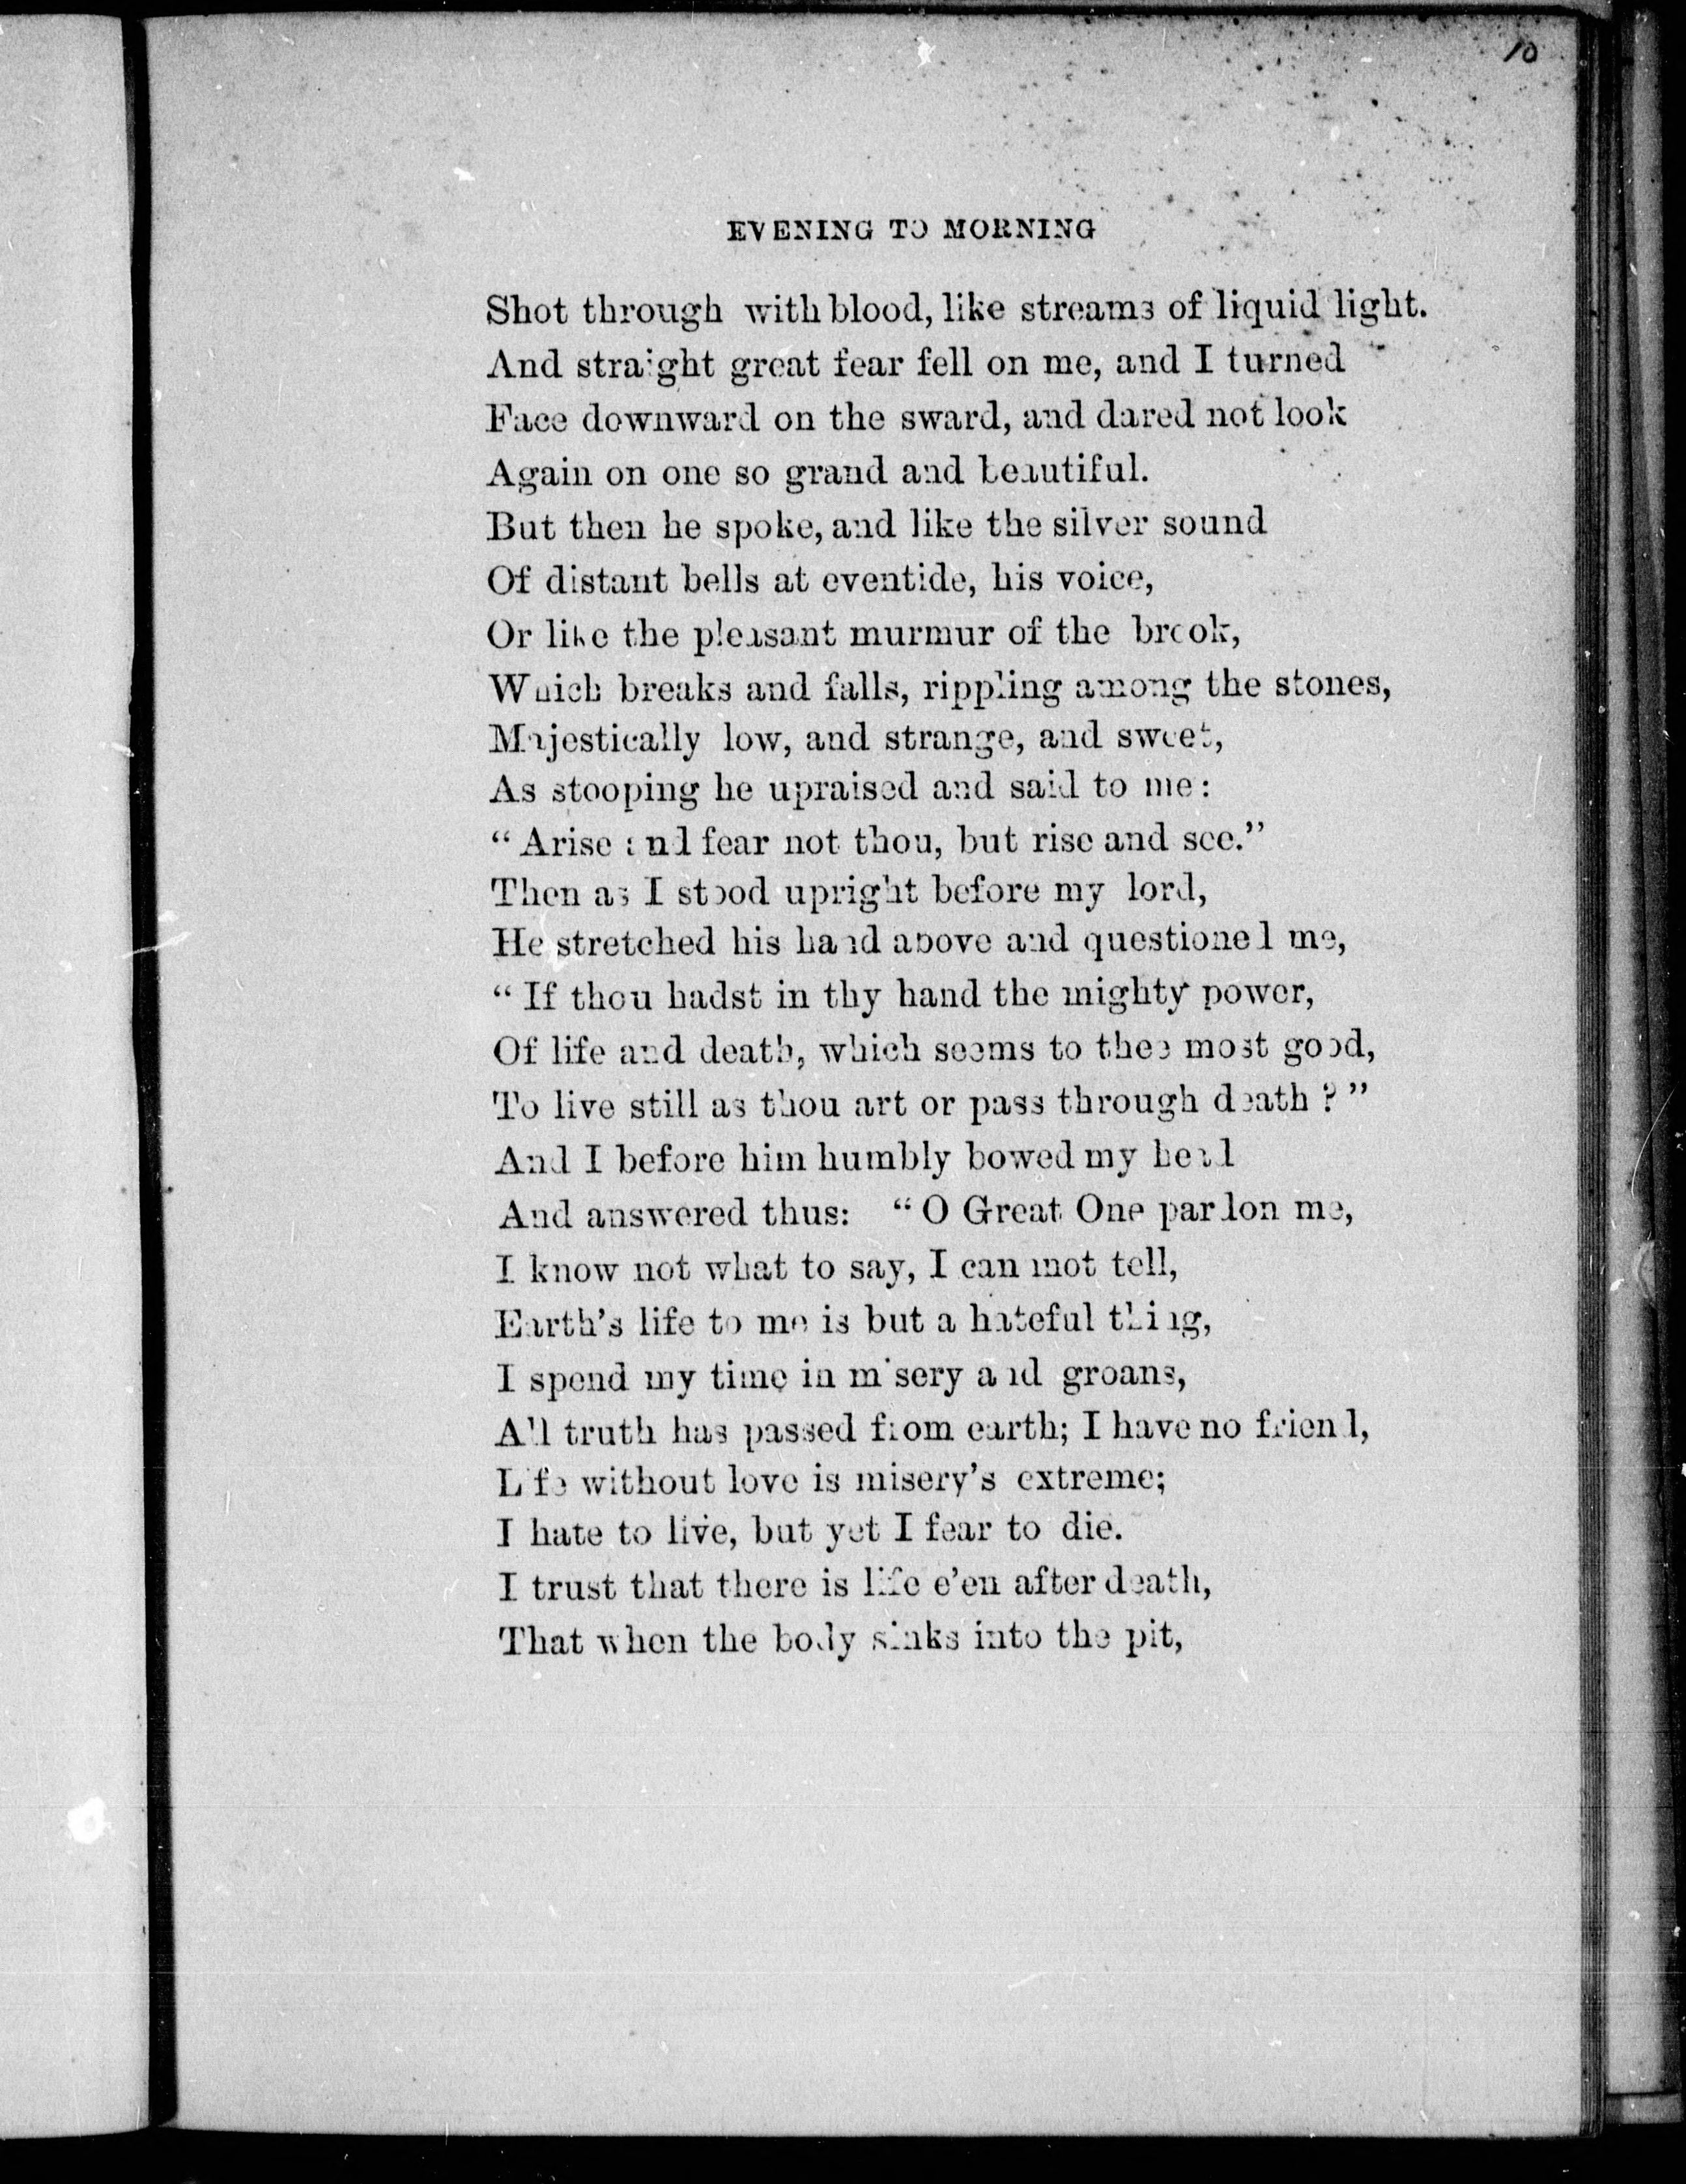 10
EVENING TO MORNING
Shot through with blood, like streams of liquid light.
And straight great fear fell on me, and I turned
Face downward on the sward, and dared not look
Again on one so grand and beautiful.
But then he spoke, and like the silver sound
Of distant bells at eventide, his voice,
Or like the pleasant murmur of the brook,
Which breaks and falls, rippling among the stones,
Majestically low, and strange, and sweet,
As stooping he upraised and said to me:
“Arise and fear not thou, but rise and see.”
Then as I stood upright before my lord,
He stretched his hand above and questioned me,
“If thou hadst in thy hand the mighty power,
Of life and death, which seems to thee most good,
To live still as thou art or pass through death?”
And I before him humbly bowed my head
And answered thus: “O Great One pardon me,
I know not what to say, I can mot tell,
Earth’s life to me is but a hateful thing,
I spend my time in misery and groans,
All truth has passed from earth; I have no friend,
Life without love is misery’s extreme;
I hate to live, but yet I fear to die.
I trust that there is life e’en after death,
That when the body sinks into the pit,